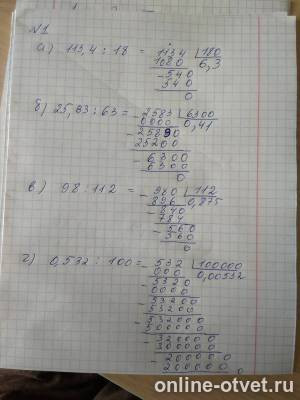 №1
а) 113,4 : 18 = 1134 | 180
1080 6,3
- 540
540
0
б) 25,83 : 63 = - 2583 | 6300
0000 0,41
- 25830
25200
- 6300
6300
0
в) 98 : 112 = - 980 | 112
896 0,875
- 840
784
- 560
560
0
г) 0,532 : 100 = - 532 | 100000
000 0,00532
- 5320
0000
- 53200
53200
- 532000
500000
- 320000
300000
- 200000
200000
0
online-otvet.ru